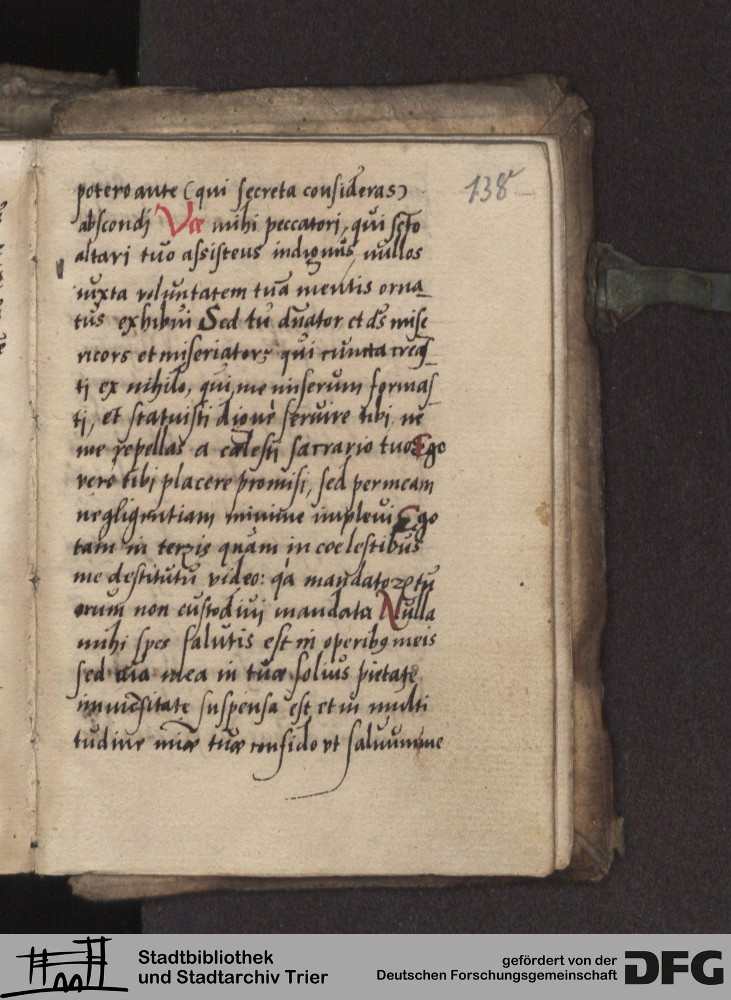 138r
potero ante (qui secreta consideras)
abscondi Vae mihi peccatori, qui scto
altari tuo assistens indignus nullos
iuxta voluntatem tuā mentis orna_
tus exhibui Sed tu dnator et ds mise
ricors et miserator qui cuncta creas_
ti ex nihilo, qui me miserum formas_
ti, et statuisti digne seruire tibi ne
me repellas a celesti sacrario tuo Ego
vero tibi placere promisi, sed per meam
negligentiam minime impleui Ego
tam in terris quam in coelestibus
me destitutū video: qa mandatorū tu
orum non custodiui mandata Nulla
mihi spes salutis est in operibꝯ meis
sed aīa mea in tuae solius pietatę
immēsitate suspensa est et in multi
tudine mīae tuae confido vt saluum me
Stadtbibliothek
und Stadtarchiv Trier
gefördert von der
Deutschen Forschungsgemeinschaft
DFG